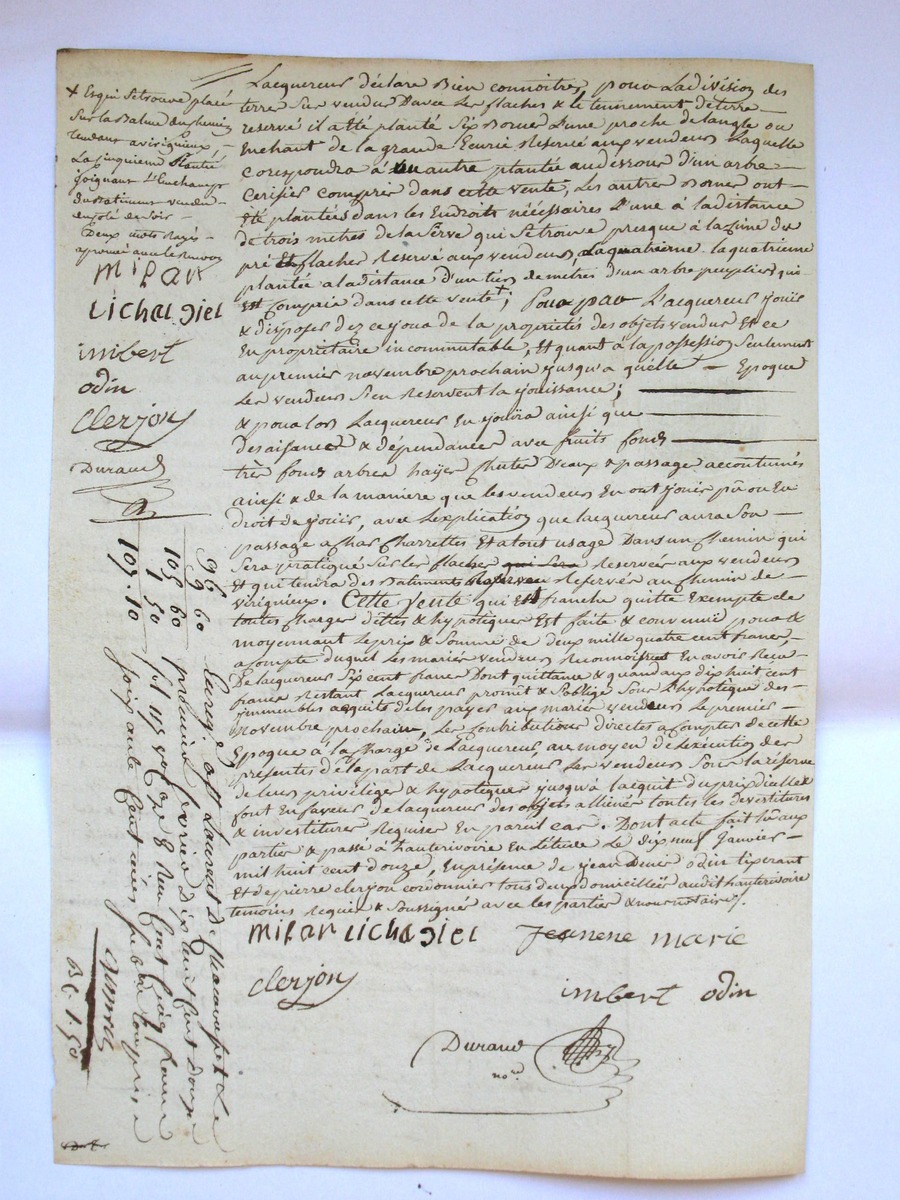 Lacquereur déclare Bien connoitre, pour La division des
terres sus vendus Davec Les flaches & le tenurement de terre
reservé il a été planté Six Bornes L'une proche de langle ou
Enchant de la grande Ecurie Reservé aux vendeurs Laquelle
corespondra à un autre plantée au dessous d'un arbre
Cerisier compris dans cette vente, Les autres Bornes ont
Eté plantés dans les Endroits nécéssaires L'une à la distance
de trois metres de la serve qui Se trouve presque à la Cime du
pré Et flaches Reservé aux vendeurs, La quatrieme la quatrieme
plantée a la distance d'un tiers de metres d'un arbre peuplier qui
Est Compris dans cette vente +; Pour par L'acquereur jouir
& disposer dez ce jour de la proprietés des objets vendus Et ce
En propriétaire incommutable, Et quant à la possession Seulement
au premier novembre prochain jusqu'a quelle Epoque
Les vendeurs S'en Reservent la jouissance;
& pour lors Lacquereur En jouira ainsi que
des aisances & dépendances avec fruits fonds
très fonds arbres hayes Chutes D'eaux & passage accoutumés
ainsi & de la maniere que les vendeurs En ont joui pû ou Eu
droit de jouir, avec L'explication que lacquereur aura Son
passage a Char Charrettes Et a tout usage Dans un Chemin qui
Sera pratique Sur les flaches qui Sera Reservés aux vendeurs
& qui tendra des Batiments Reservés au Chemin de
virignieux. Cette vente qui Est franche quitte Exempte de
toutes Charges dettes & hypotèques Est faite & convenue pour &
moyennant Le prix & Somme de deux mille quatre cent francs,
acompte duquel Les mariés vendeurs Reconnoissent En avoir Recu
de lacquereur Six cent francs Dont quittance & quand aux dix huit cent
francs Restant Lacquereur promet & S'oblige Sous L'hypotèque des
immeubles acquits de les payer aux mariés vendeurs Le premier
Novembre prochain, Les Contributions directes a Compter de cette
Epoque à la Charge de Lacquereur au moyen de Lexécution des
présentes de la part de Lacquereur Les vendeurs Sous la réserve
de leurs privilèges & hypotèques jusqu'à lacquit du prix dicelle &
font En faveur de lacquereur des objets alliénés toutes les devestitures
& investitures Requises En pareil cas. Dont acte fait lû aux
parties & passé à L'hauterivoire En L'étude Le dix neuf Janvier
mil huit cent douze, En présence de jean Denis odin tisserant
Et de pierre clerjon cordonnier tous deux domiciliés audit hauterivoire
temoins Requis & Soussignés avec les parties & nous notaire.
milan Lichagiel Jeanene marie
clerjon imbert odin
Durand
no.re
+ Et qui Se trouve placée
Sur la Balme du chemin
tendant a virignieux,
La cinquieme planté
joignant L'Enchampt
du Batiment vendu
du coté de Soir
Deux mots Rayés
aprouvé aux le Renvoy
milan
Lichagiel
imbert
odin
Clerjon
Durand
96 60
9
105 60
1 50
107.10
Enreg. à St Laurent de Chamousset Le
premier fevrier dix huit cent douze
f.